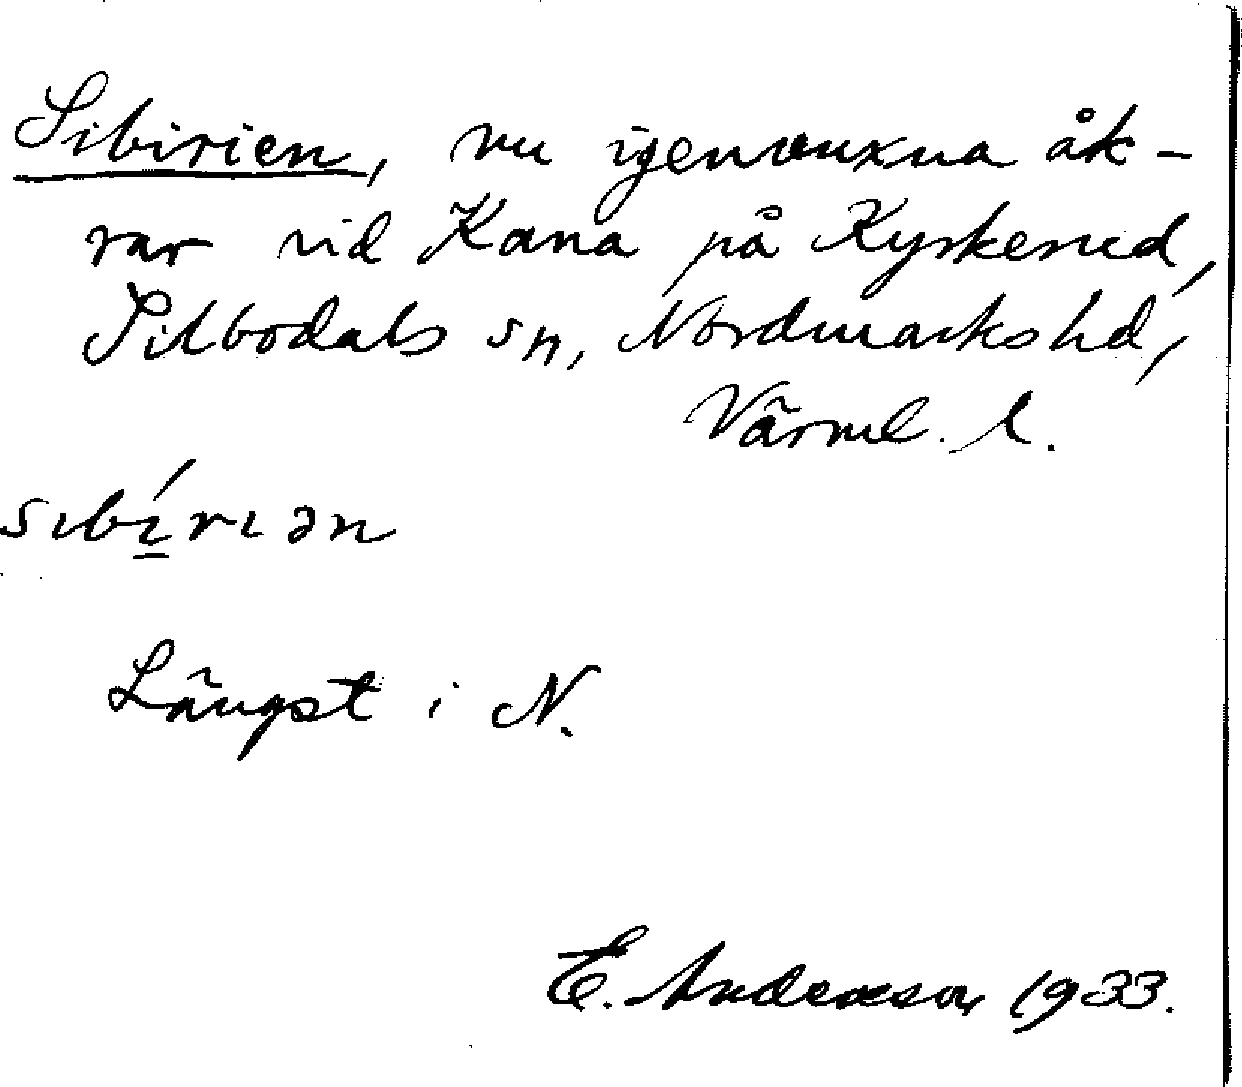 Sibirien, nu igenvuxna åk-
rar vid Kana på Kyrkerud,
Silbodals sn, Nordmarks hd,
Värml. l.
sıbí̱rıən
Längst i N.
E. Andersson 1933.